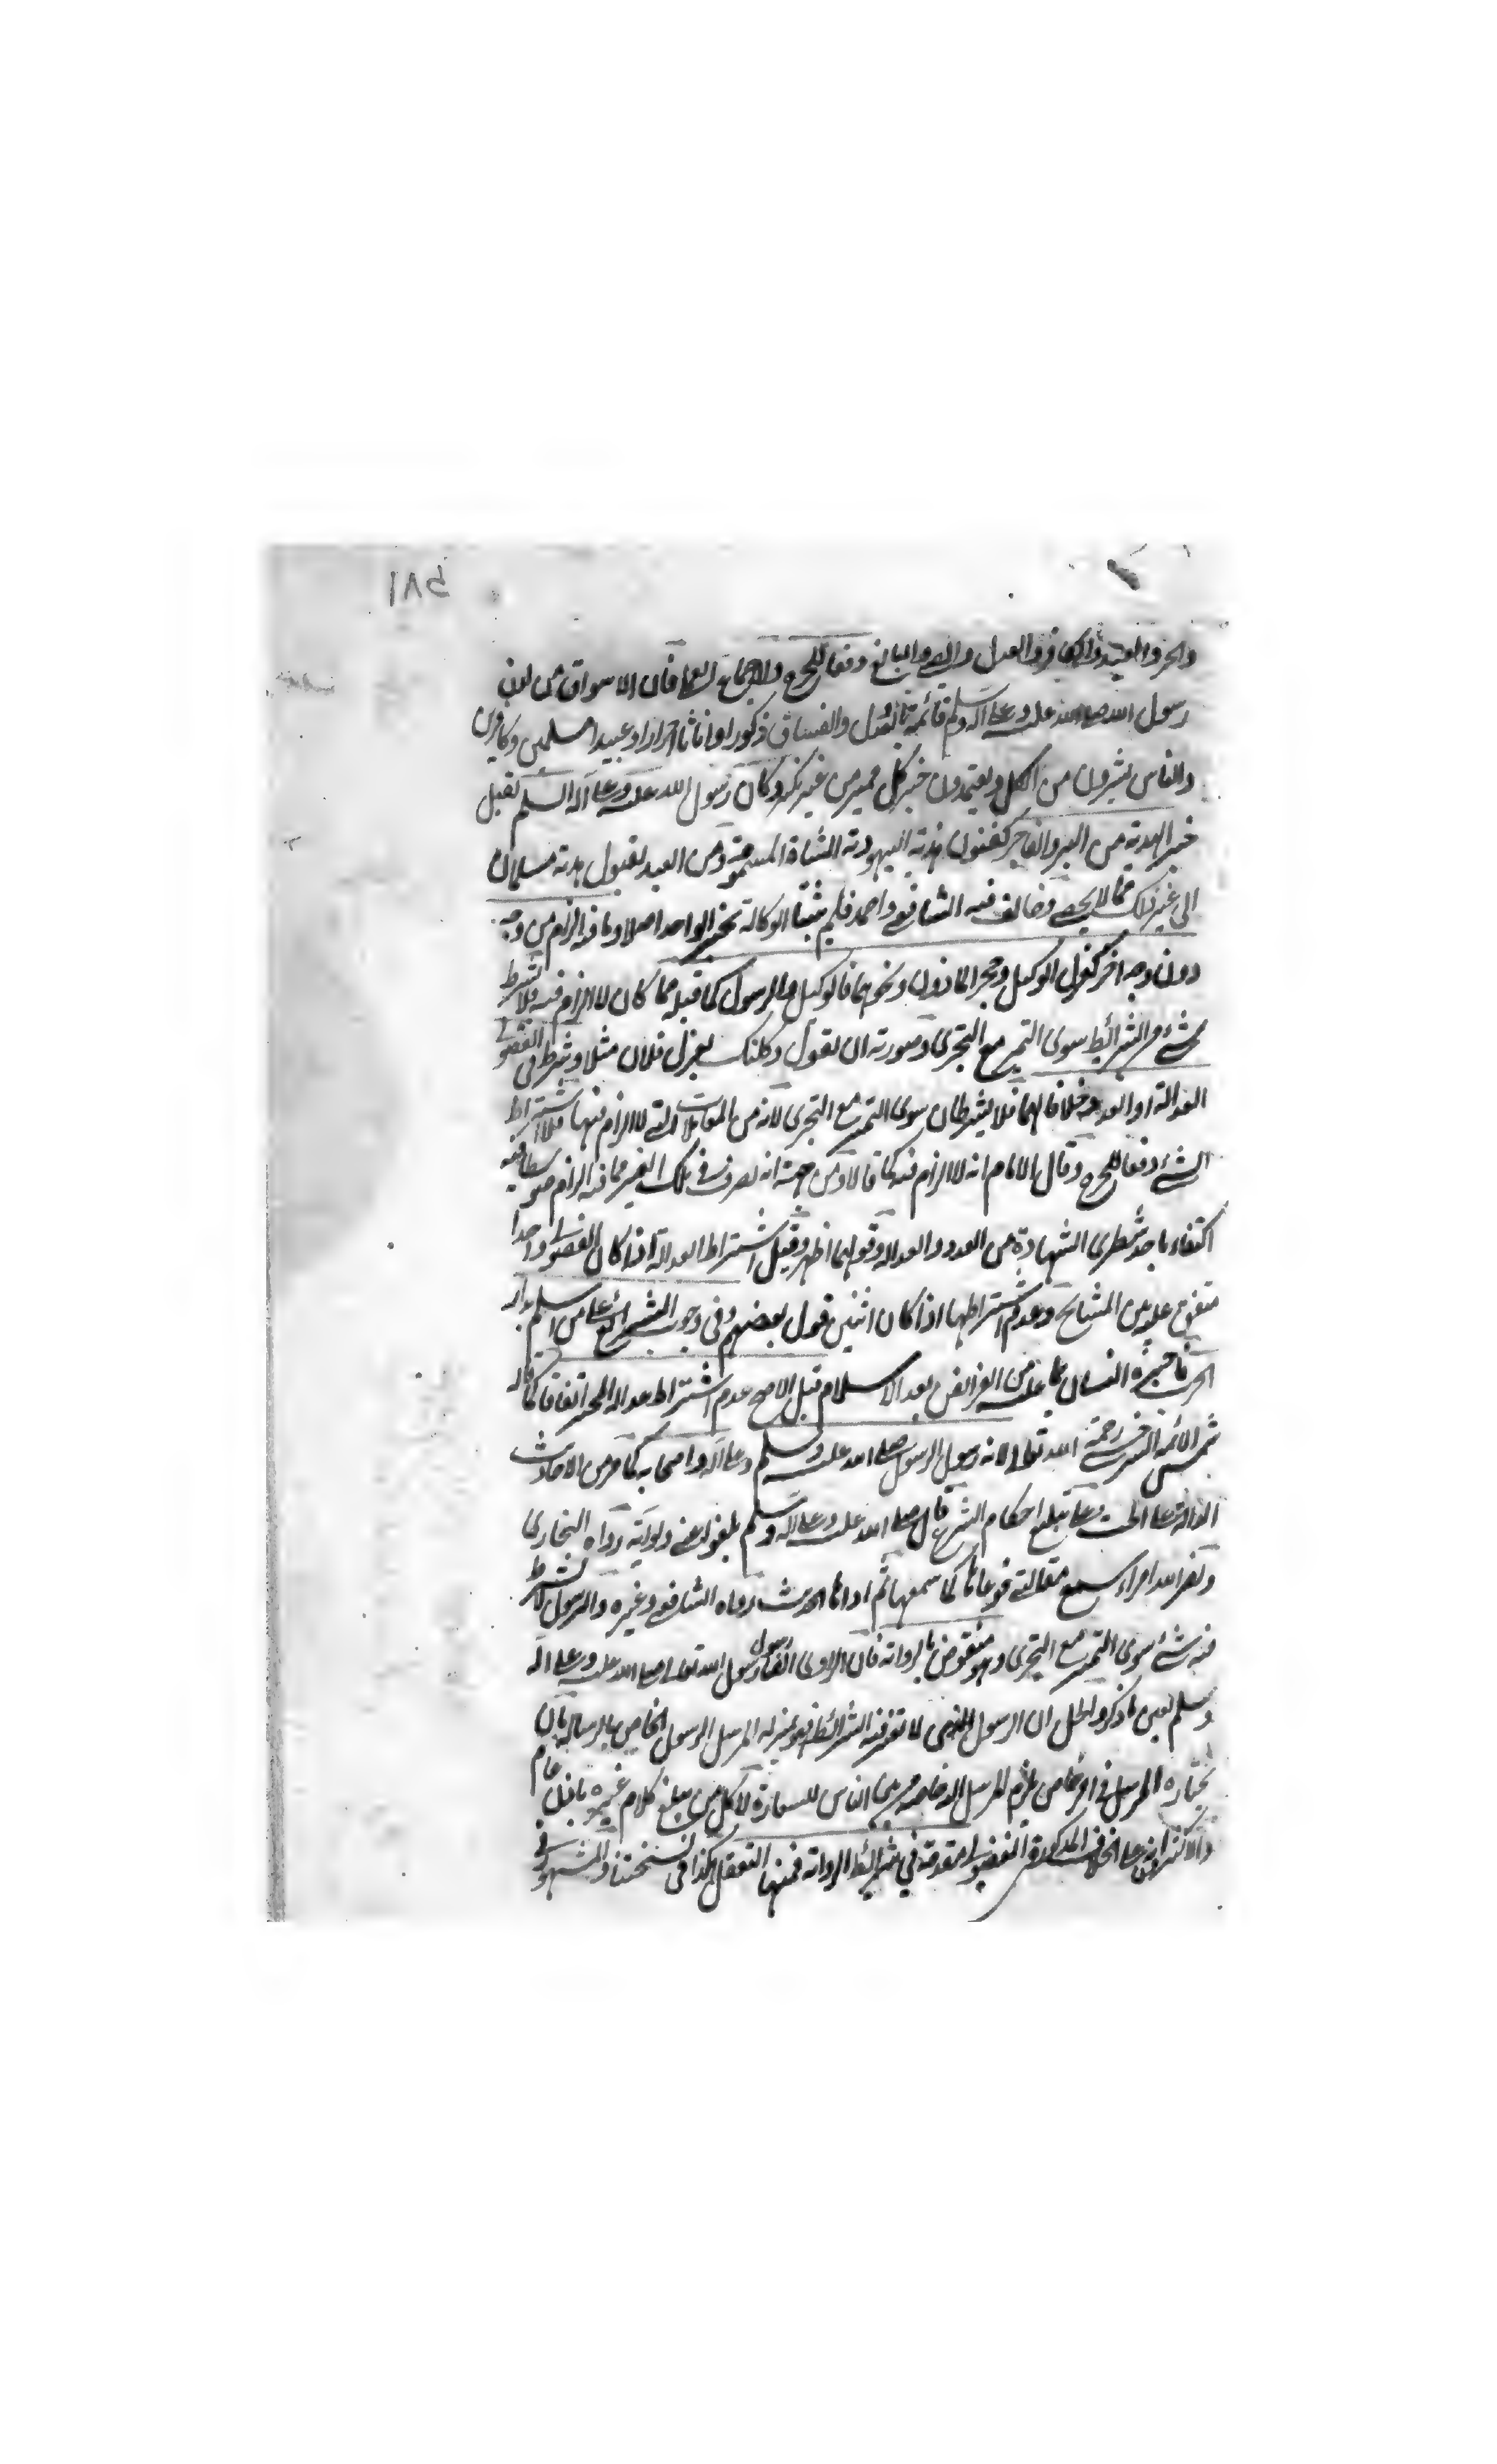 ١٨٥
والحر والعبد والكافر والعدل والصبي والبالغ دفعا للحرج والاجماع العملي فان الاسواق من لدن
رسول الله صلى الله عليه وعلى آله وسلم قائمة بالعدول والفساق ذكورا واناثا احرارا وعبيدا مسلمين وكافرين
والناس يشترون من الكل ويعتمدون خبر كل مميز من غير نكير وكان رسول الله عليه وعلى آله السلم يقبل
خبر الهدية من البر والفاجر كقبول هدية اليهودية الشاة المسمومة ومن العبد لقبول هدية سلمان
الى غير ذلك مما لا يحصى وخالف فيه الشافعي واحمد فلم يثبتا الوكالة بخبر الواحد اصلا وما فيه الزام من وجه
دون وجه اخر كعزل الوكيل وحجر الماذون ونحوهما فالوكيل والرسول كما قبله مما كان لا الزام فيه فلا يشترط
شيء من الشرائط سوى التميز مع التحري وصورته ان يقول وكلتك بعزل فلان مثلا وشرط في الفضولي
العدالة او العدد وخلافا لهما فلا يشترطان سوى التميز مع التحري لانه من المعاملات التي لا الزام فيها فلا اشتراط
الشيء دفعا للحرج وقال الامام انه لا الزام فيه كما قالا ومن جهة انه تصرف في ملك الغير مما فيه الزام
اكتفاء باحد شطري الشهادة من العدد والعدالة وقولهما اظهر وقيل اشتراط العدالة اذا كان الفضولي واحدا
متفق عليه من المشايخ وعدم اشتراطها اذا كان اثنين قول بعضهم وفي وجوب الشرائع على من اسلم بدار
الحرب فاخبره انسان بما عليه من الفرائض بعد الاسلام قيل الاصح عدم اشتراط عدالة المخبر اتفاقا كما قاله
شمس الائمة السرخسي رحمة الله تعالى لانه رسول الرسول صلى الله عليه وسلم وعلى آله واصحابه كما مر من الاحاديث
الدالة على الحث وعلى تبليغ احكام الشرع قال صلى الله عليه وعلى آله وسلم بلغوا عني ولو آية رواه البخاري
ونضر الله امراء سمع مقالتي فوعاها كما سمعها ثم اداها الحديث رواه الشافعي وغيره والرسول لا يشترط
فيه شيء سوى التميز مع التحري وهو منقوض بالرواية فان الراوي ايضا رسول رسول الله تعالى صلى الله عليه وعلى آله
وسلم بعين ما ذكر والحل ان الرسول الذي لا تعتبر فيه الشرائط فهو بمنزلة المرسل الرسول الخاص بالرسالة بان
يختاره المرسل في امر خاص يلزم المرسل الناس للسفارة لا كل من يبلغ كلام غيره باذن عام
والاكثرون على الخلاف المذكور في الفضولي مقدمة في شرائط الرواية فمنها التعقل هكذا في نسختنا والمشهور في